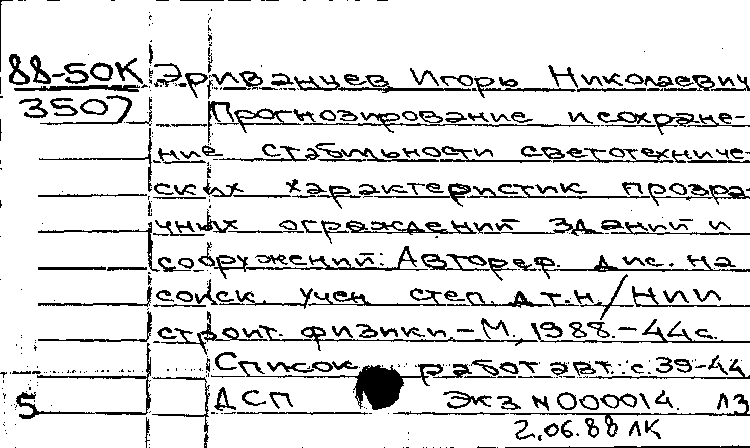 88-50К Эриванцев Игорь Николаевич
3507 Прогнозирование и сохране-
ние стабильности светотехниче-
ских характеристик прозра-
чных ограждений зданий и
сооружений: Автореф. дис. на
соиск. учен. степ. д.т.н./НИИ
строит. физики.-М., 1988.-44с.
Список работ авт.: с.39-44
5 ДСП Экз N000014 ЛЗ
2.06.88 ЛК